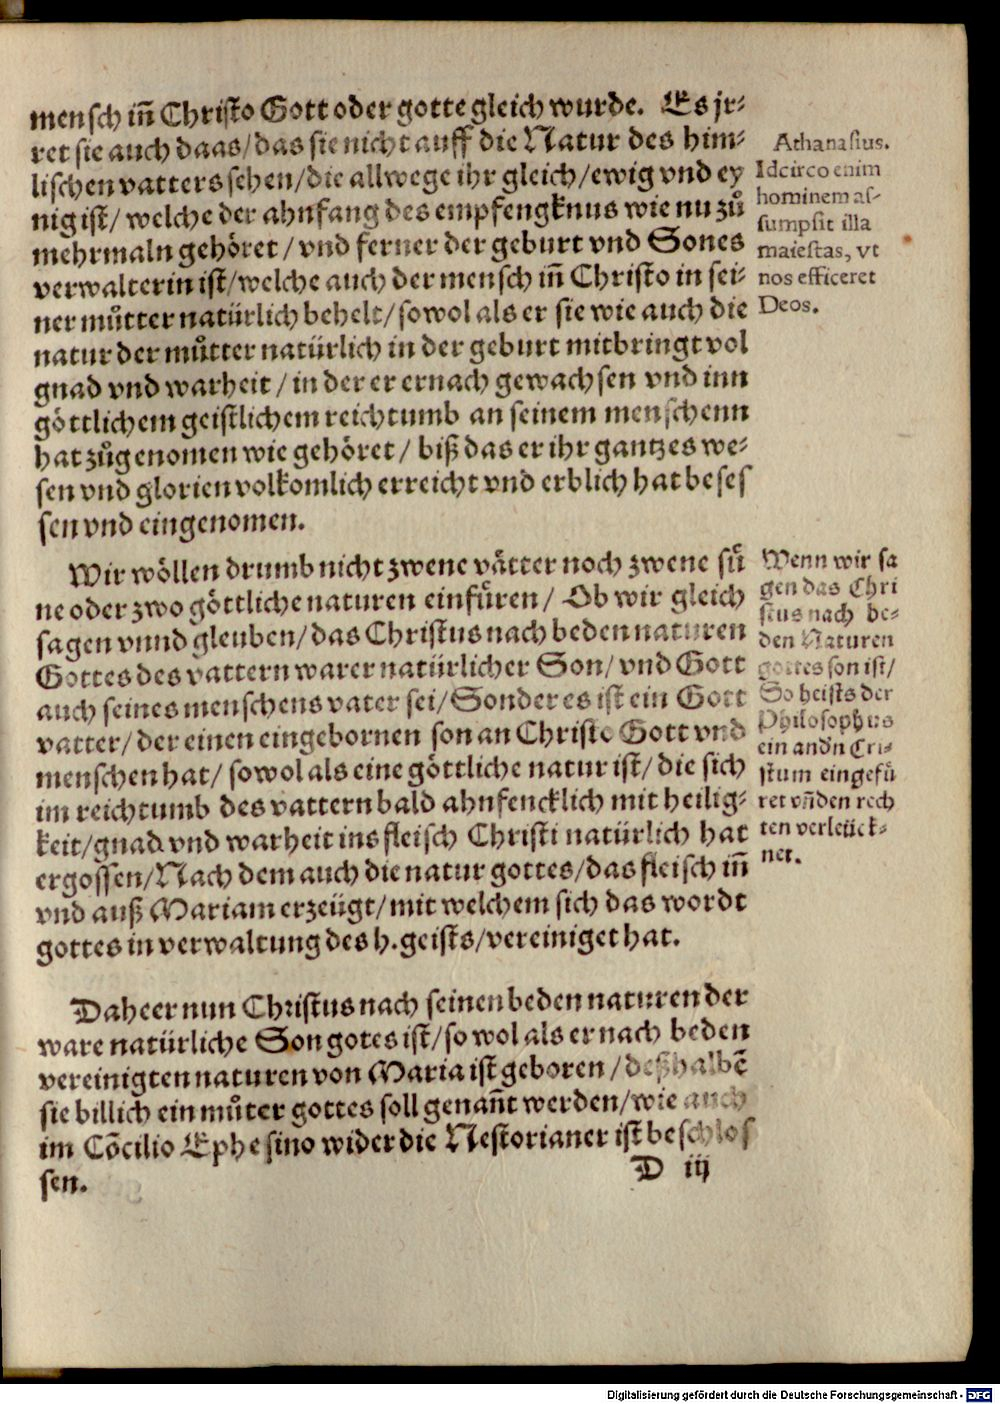 mensch iñ Christo Gott oder gotte gleich wurde. Es jr-
ret sie auch daas/das sie nicht auff die Natur des him-
lischen vatters sehen/die allwege ihr gleich/ewig vnd ey
nig ist/ welche der ahnfang des empfengknus wie nu zů
mehrmaln gehöret/ vnd ferner der geburt vnd Sones
verwalterin ist/welche auch der mensch iñ Christo in sei-
ner můtter natürlich behelt/sowol als er sie wie auch die
natur der můtter natürlich in der geburt mitbringt vol
gnad vnd warheit/ in der er ernach gewachsen vnd inn
göttlichem geistlichem reichtumb an seinem menschenn
hat zůgenomen wie gehöret/ biß das er ihr gantzes we-
sen vnd glorien volkomlich erreicht vnd erblich hat beses
sen vnd eingenomen.
Athanasius.
Idcirco enim
hominem as-
sumpsit illa
maiestas, vt
nos efficeret
Deos.
Wir wöllen drumb nicht zwene vätter noch zwene sü
ne oder zwo göttliche naturen einfüren/ Ob wir gleich
sagen vnnd gleuben/das Christus nach beden naturen
Gottes des vattern warer natürlicher Son/ vnd Gott
auch seines menschens vater sei/Sonder es ist ein Gott
vatter/ der einen eingebornen son an Christo Gott vnd
menschen hat/ sowol als eine göttliche natur ist/ die sich
im reichtumb des vattern bald ahnfencklich mit heilig-
keit/gnad vnd warheit ins fleisch Christi natürlich hat
ergossen/Nach dem auch die natur gottes/das fleisch iñ
vnd auß Mariam erzeügt/mit welchem sich das wordt
gottes in verwaltung des h. geists/vereiniget hat.
Wenn wir sa
gen das Chri
stus nach be-
den Naturen
gottes son ist/
So heists der
Philosophus
ein andn Cri-
stum eingefü
ret vñ den rech
ten verleück-
net.
Daheer nun Christus nach seinen beden naturen der
ware natürliche Son gotes ist/so wol als er nach beden
vereinigten naturen von Maria ist geboren/deßhalbẽ
sie billich ein můter gottes soll genañt werden/wie auch
im Cõcilio Ephesino wider die Nestorianer ist beschlos
sen.
D iij
Digitalisierung gefördert durch die Deutsche Forschungsgemeinschaft - DFG